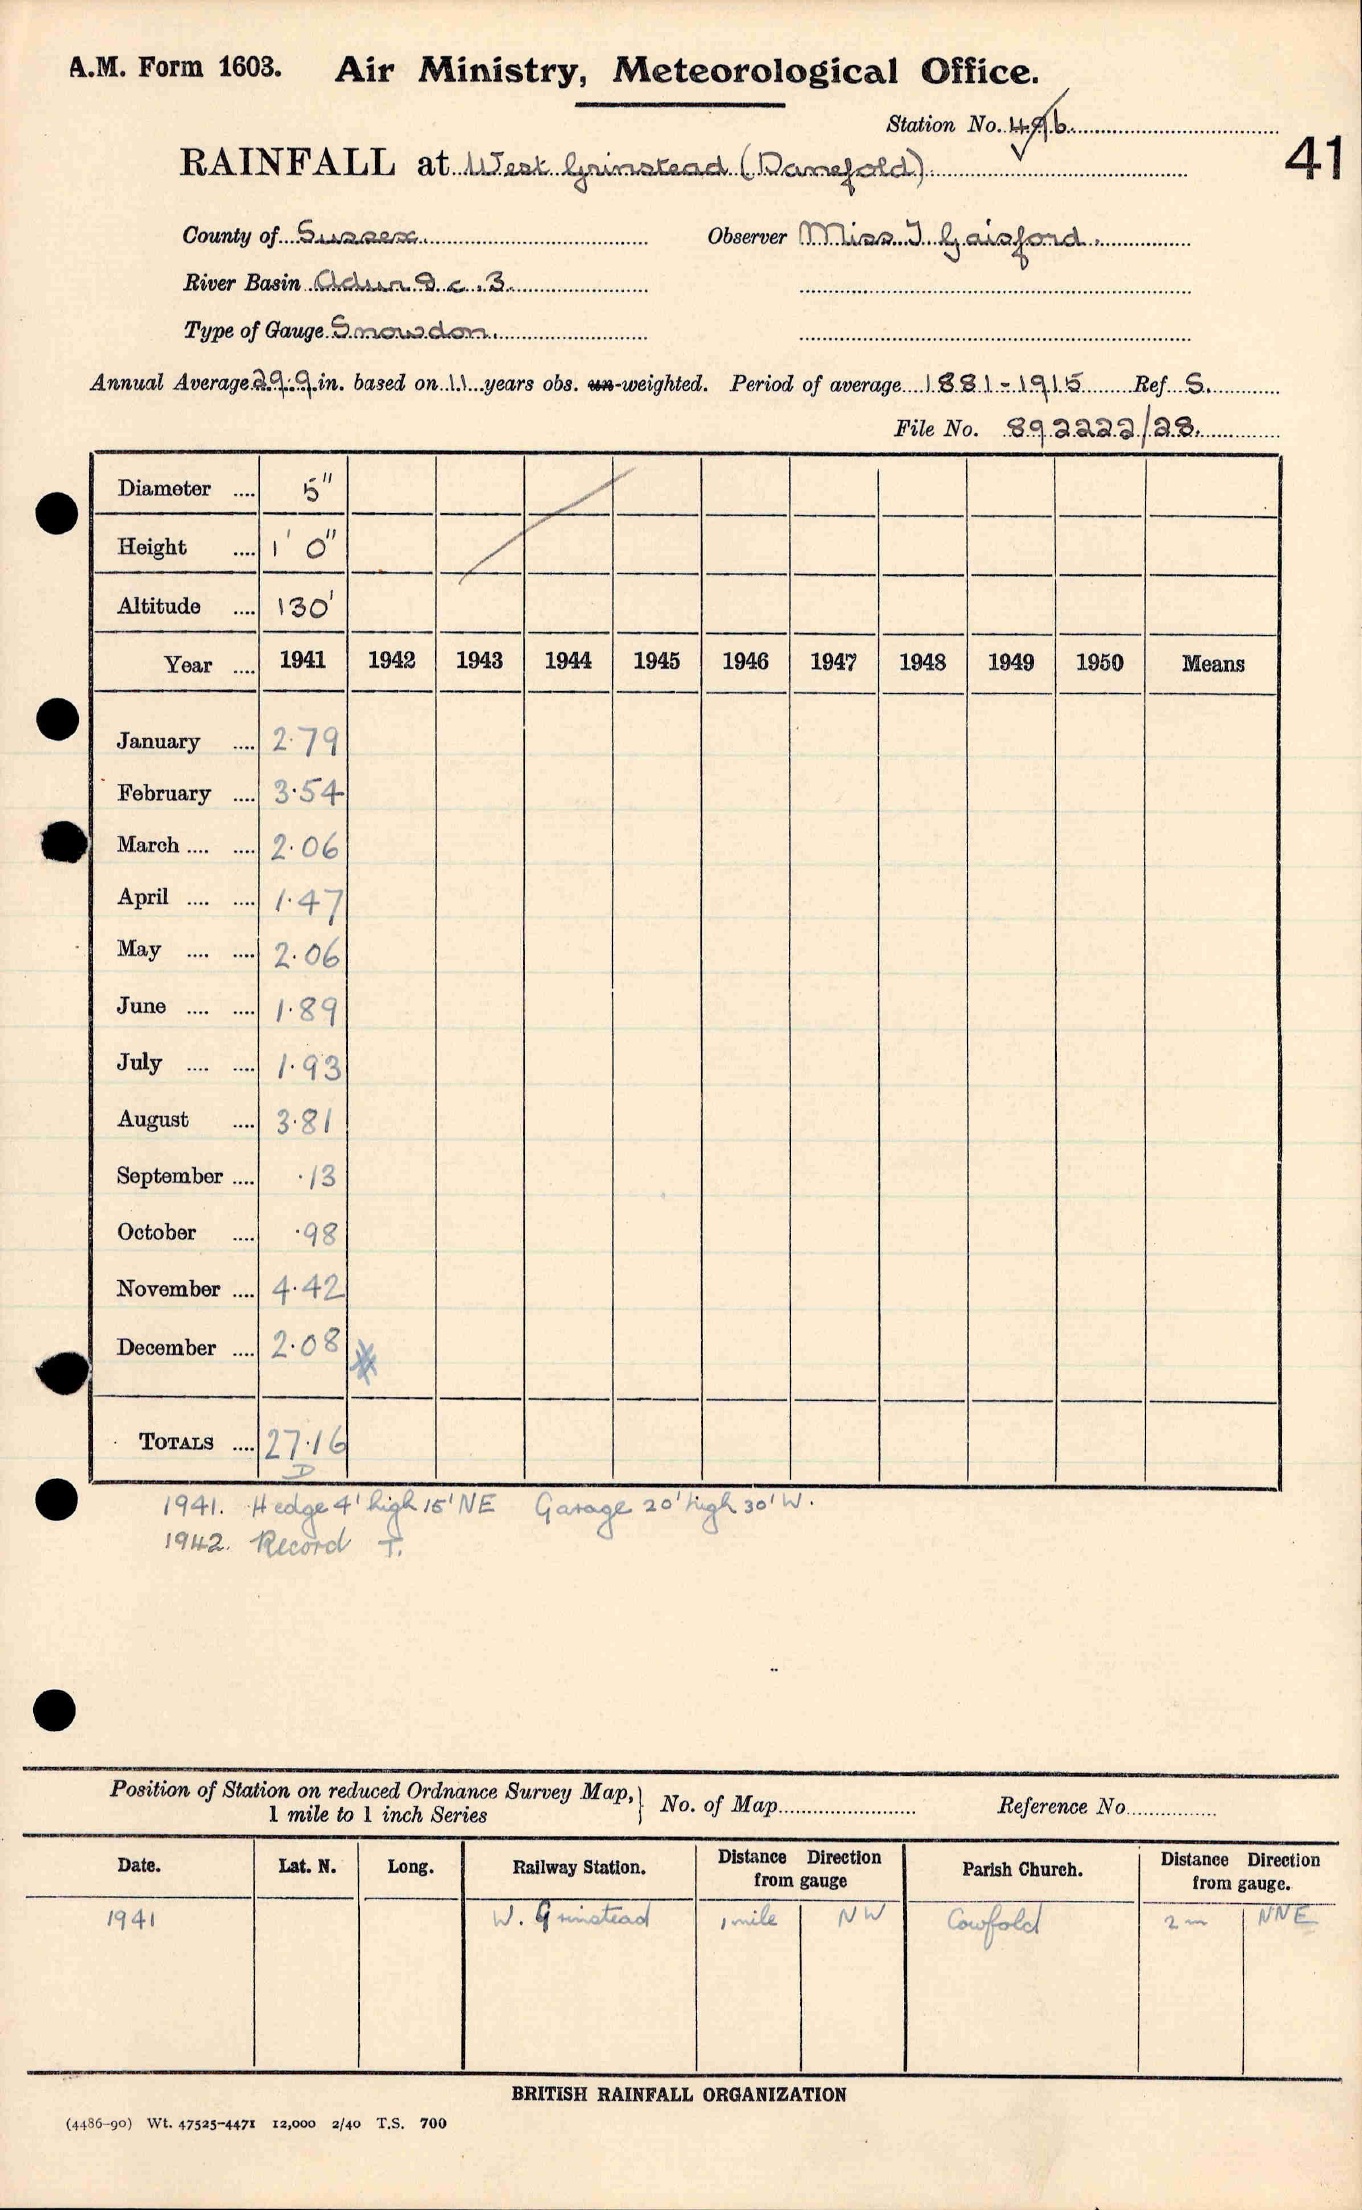 A.M. Form 1603. Air Ministry, Meteorological Office.
Station No. 496.
41
RAINFALL at West Grinstead (Danefold)
County of Sussex. Observer Miss I Gaisford.
River Basin Adur 8 c. 3.
Type of Gauge Snowdon.
Annual Average 29.9 in. based on 11 years obs. un-weighted. Period of average 1881-1915 Ref S.
File No. 892222/28.
Diameter .... 5"
Height .... 1' 0"
Altitude .... 130'
Year .... 1941 1942 1943 1944 1945 1946 1947 1948 1949 1950 Means
January .... 2.79
February .... 3.54
March .... .... 2.06
April .... .... 1.47
May .... .... 2.06
June .... .... 1.89
July .... .... 1.93
August .... 3.81
September .... .13
October .... .98
November .... 4.42
December .... 2.08
TOTALS .... 27.16
D
1941. Hedge 4' high 15' NE Garage 20' high 30' W.
1942. Record T.
Position of Station on reduced Ordnance Survey Map, 1 mile to 1 inch Series } No. of Map Reference No.
Date. Lat. N. Long. Railway Station. Distance Direction from gauge Parish Church. Distance Direction from gauge.
1941 W. Grinstead 1 mile NW Cowfold 2 m NNE
BRITISH RAINFALL ORGANIZATION
(4486-90) Wt. 47525-4471 12,000 2/40 T.S. 700